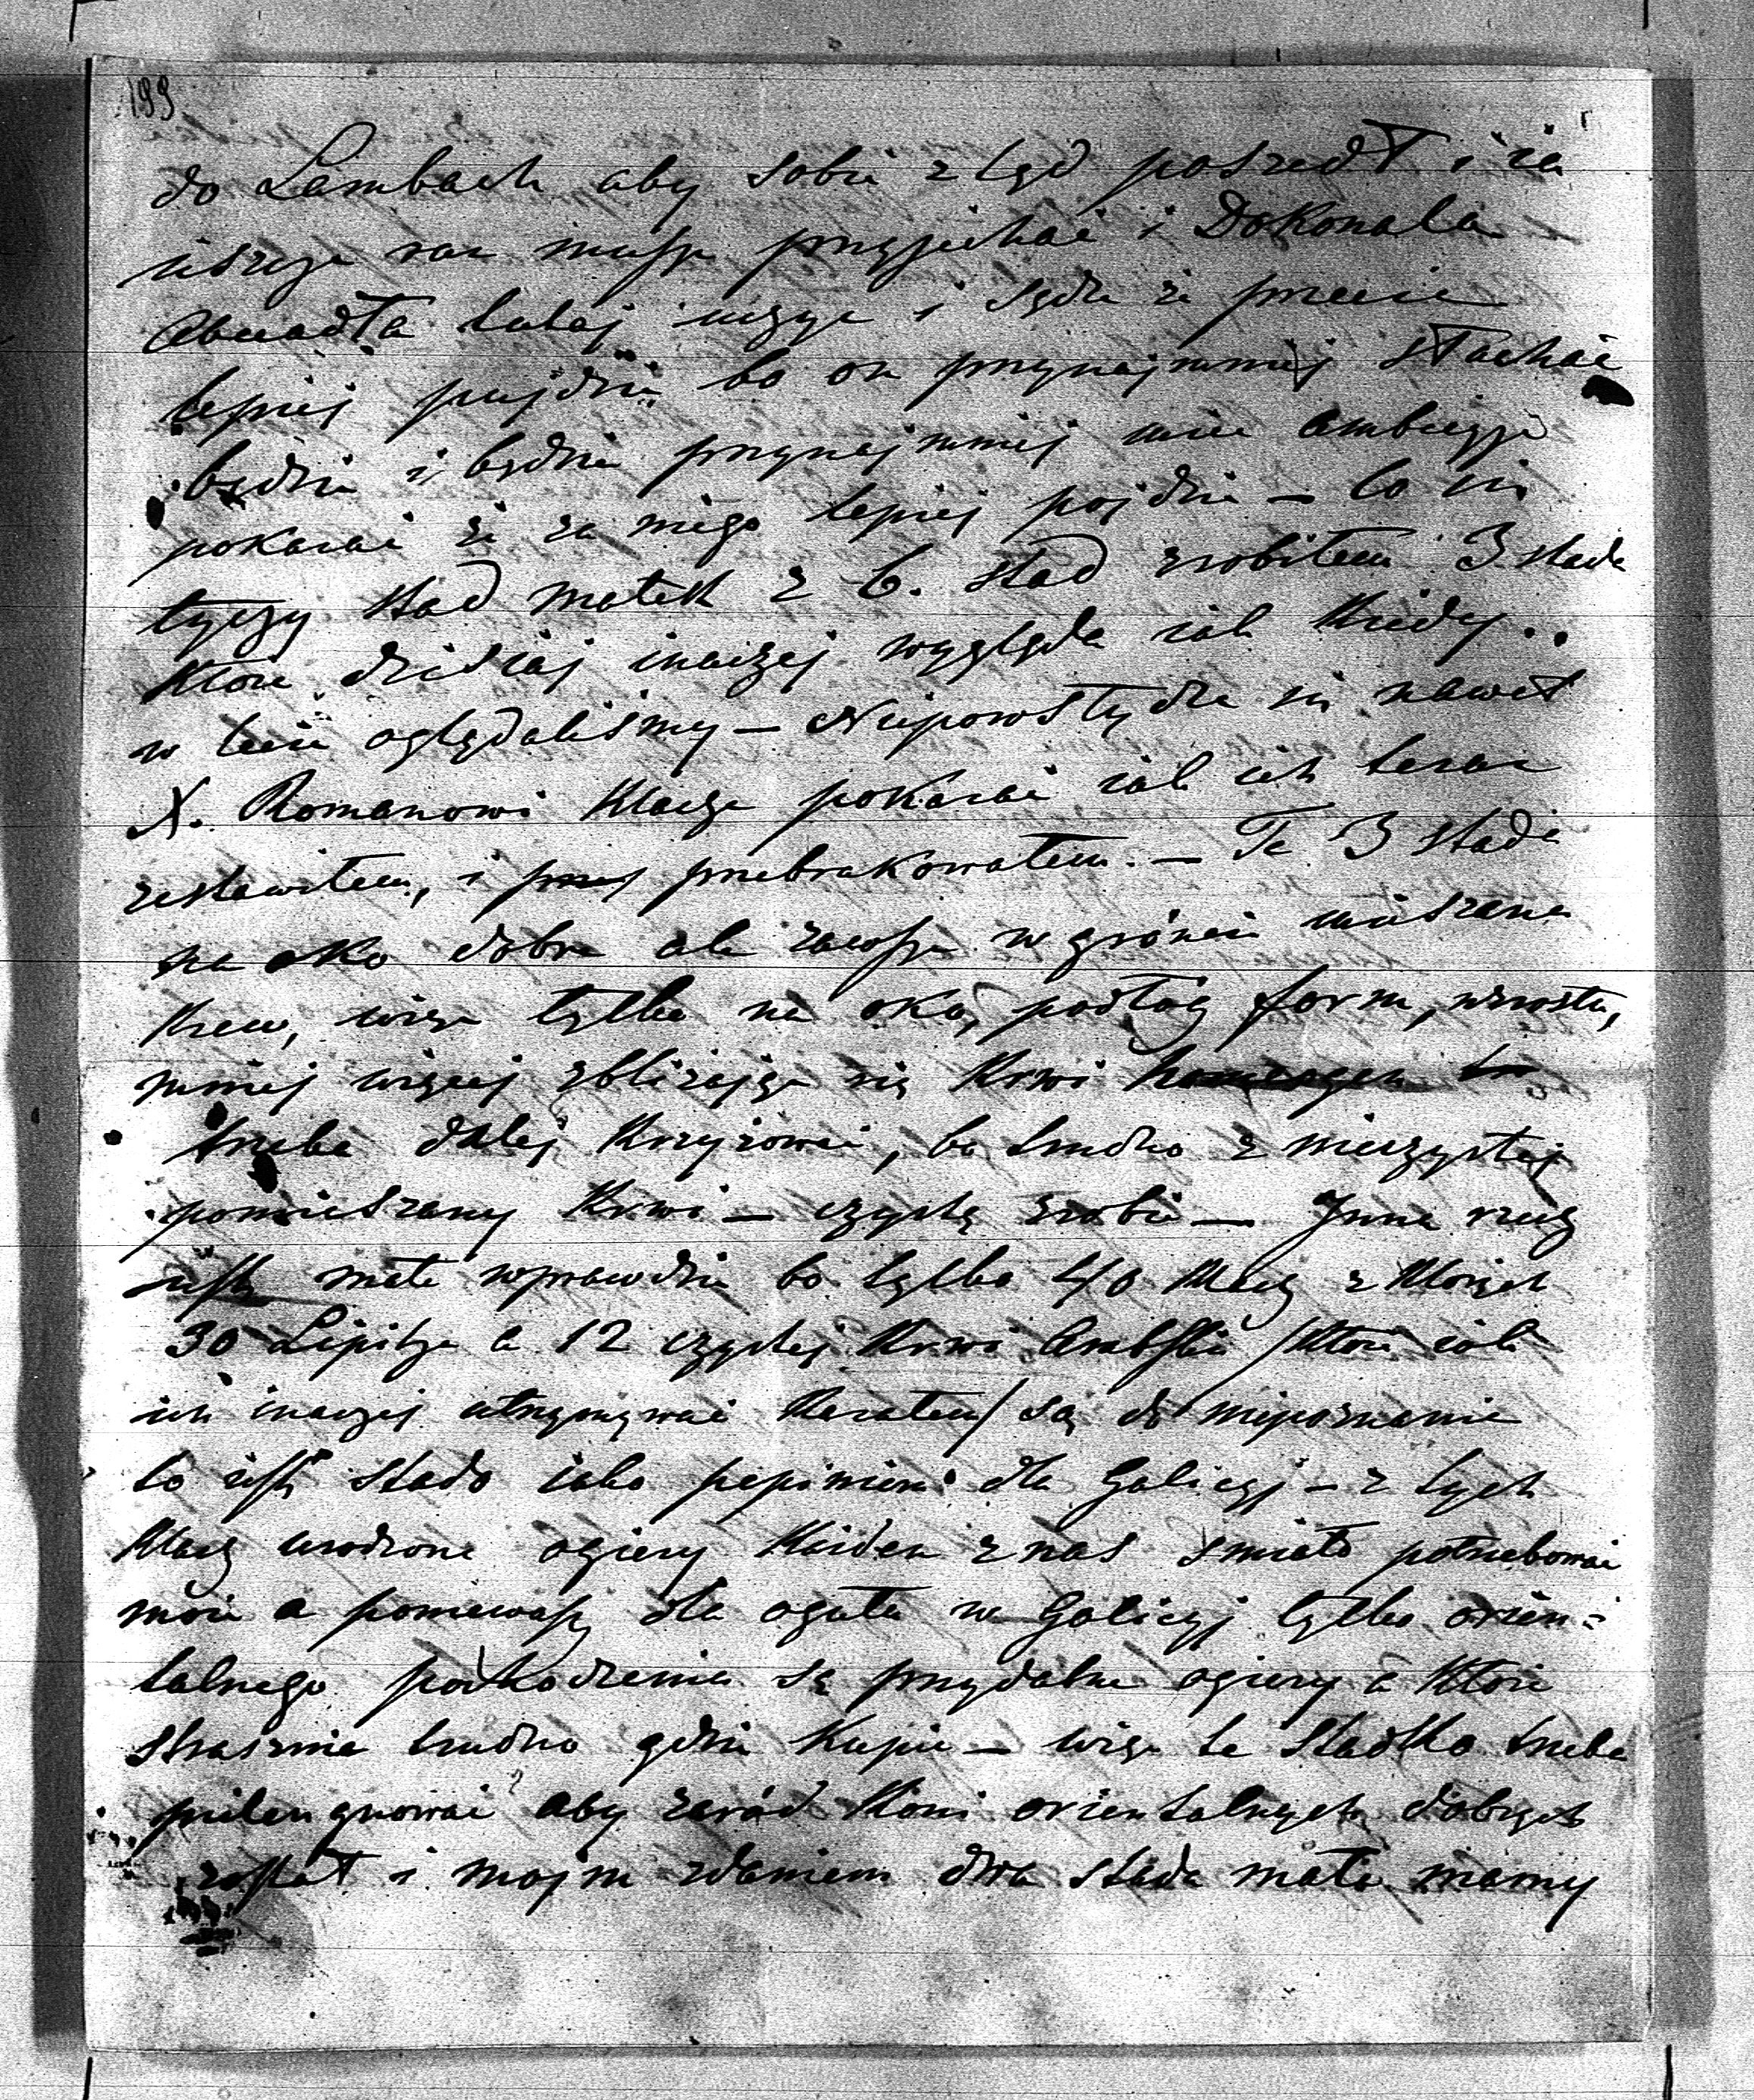 199
do Lambach aby sobie z tąd poszedł i ia
ieszcze raz muszę przyjechać i Dokonała
Abwadła tutaj użyje i sądzę że przecie
lepiej pujdzie bo on przynajmniej słuchać
będzie i będzie przynajmniej mieć ambicyje
pokazać że za niego lepiej pojdzie – Co się
tyczy stad matek z 6. stad zrobiłem 3 stada
które dzisiaj inaczej wygląda iak kiedy
w lecie oglądaliśmy – Niepowstydzę się nawet
X. Romanowi klacze pokazać iak ich teraz
zestawiłem, i przebrakowałem. – Te 3 stada
na oko dobre ale zawsze w gróncie mieszana
krew, więc tylko na oko, podług form, wzrostu,
mniej więcej zbliżając się krwi
trzeba dalej krzyżować, bo trudno z nieczystej
pomieszany krwi – czystą zrobić – Inna rzecz
jest małe wprawdzie bo tylko 40 klacz z ktorych
30 Lipitze a 12 czystej krwi Arabskie /które iak
ich inaczej utrzymywać kazałem/ są do niepoznania
to iest stado iako pepinieri dla Galicyj – z tych
klacz urodzone ogiery każden z nas śmiało potrzebować
może a poniewasz dla ogółu w Galicyj tylko orien=
talnego pochodzenia są przydatne ogiery a które
strasznie trudno gdzie kupić – więc te stadko trzeba
pielengnować aby zaród koni orientalnych dobrych
został i mojm zdaniem dwa stada małe mamy